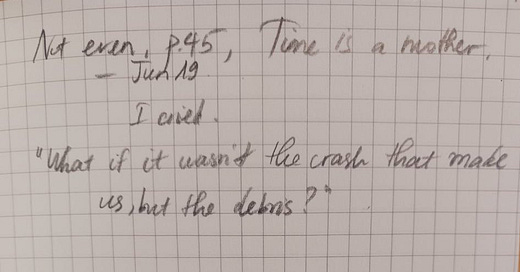 Not even, p.45, Time is a mother.
– Jun 19
I cried.
"What if it wasn't the crash that make
us, but the debris?"